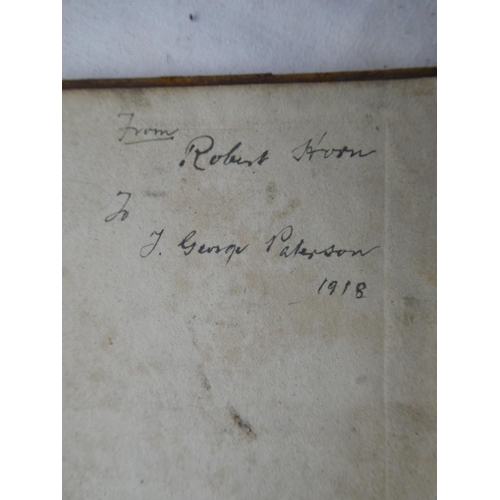 From
Robert Horn
To
J. George Paterson
1918